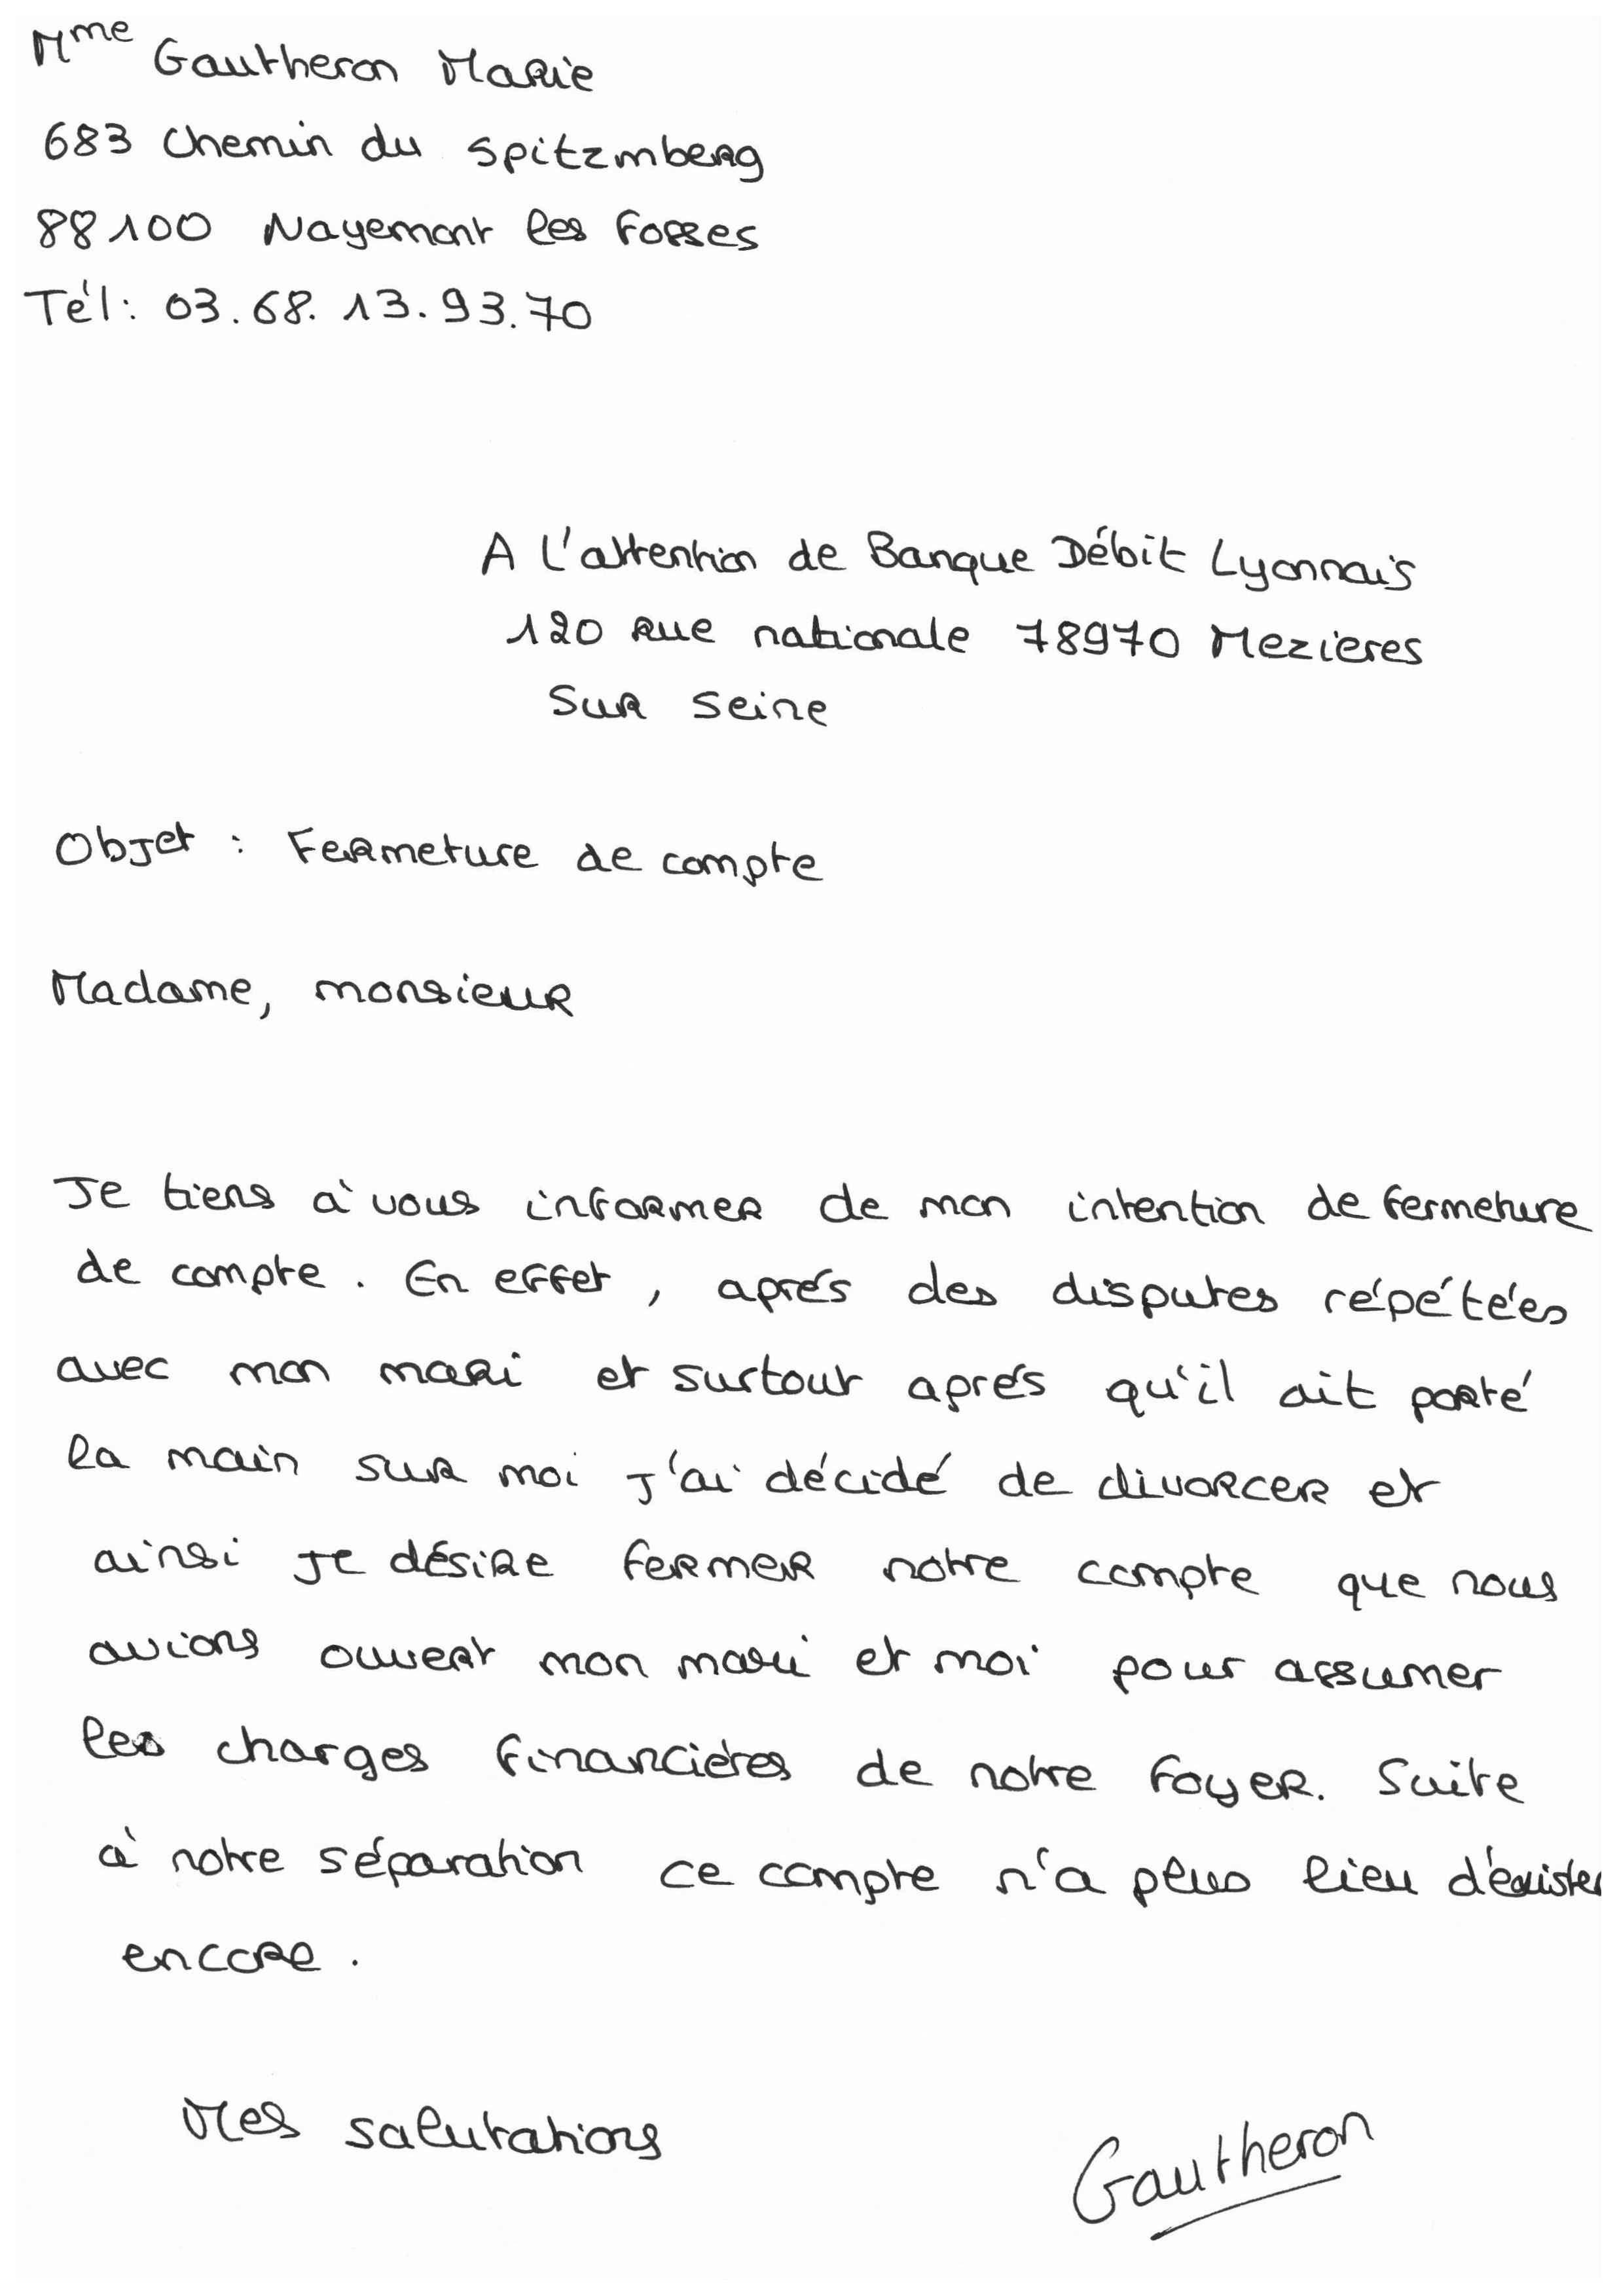 Mme Gautheron Marie
683 chemin du spitzmberg
88100 Nayemont les Fosses
Tél : 03.68.13.93.70
A L'attention de Banque Débit Lyonnais
120 rue nationale 78970 Mezieres
sur seine
Objet : Fermeture de compte
Madame, monsieur
Je tiens à vous informer de mon intention de fermeture
de compte. En effet, aprés des disputes répétées
avec mon mari et surtout aprés qu'il ait porté
la main sur moi j'ai décidé de divorcer et
ainsi je désire fermer notre compte que nous
avions ouvert mon mari et moi pour assumer
les charges financiéres de notre foyer. Suite
à notre séparation ce compte n'a plus lieu d'exister
encore.
Mes salutations
Gautheron